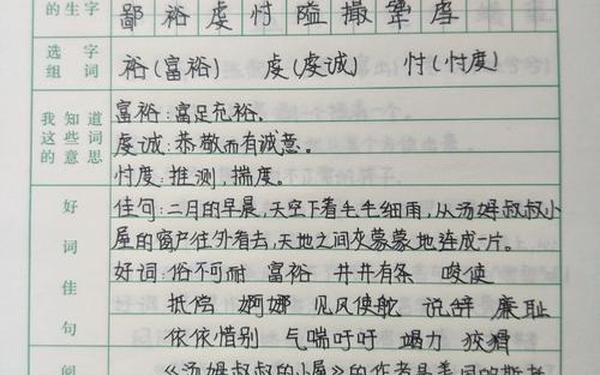 的生字 鄙 裕 虔 忖 嗑 撮 犟 厚
选字组词 裕(富裕) 虔(虔诚) 忖(忖度)
我知道这些词的意思
富裕:富足充裕。
虔诚:恭敬而有诚意。
忖度:推测,揣度。
好词佳句
佳句:二月的早晨,天空下着毛毛细雨,从汤姆叔叔小
屋的窗户往外看去,天地之间灰蒙蒙地连成一片。
好词:俗不可耐 富裕 井井有条 唆使
抵偿 婀娜 见风使舵 说辞 廉耻
依依惜别 气喘吁吁 竭力 狡猾
阅
《汤姆叔叔的小屋》的作者是美国的斯托